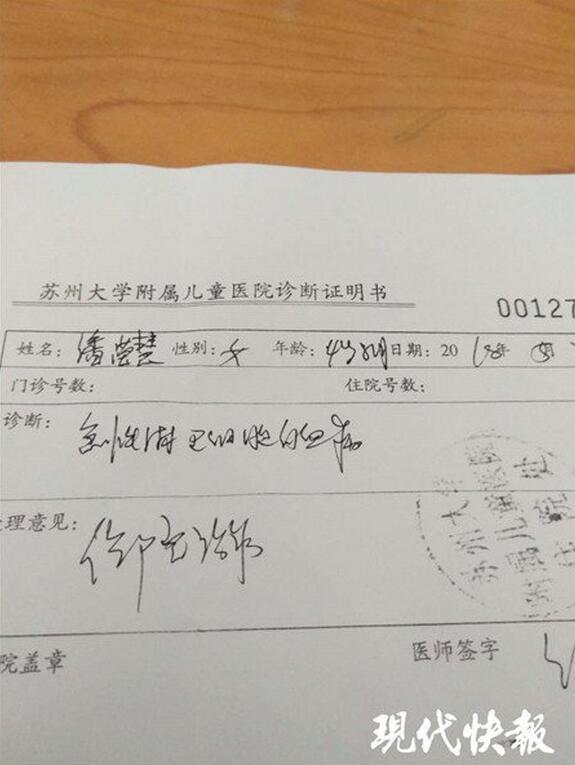 苏州大学附属儿童医院诊断证明书
00127
姓名:潘莹慧 性别:女 年龄: 日期:2018年
门诊号数: 住院号数:
诊断:急性淋巴细胞白血病
理意见:
苏州大学
附属儿童医院
住院处
院盖章 医师签字
现代快报